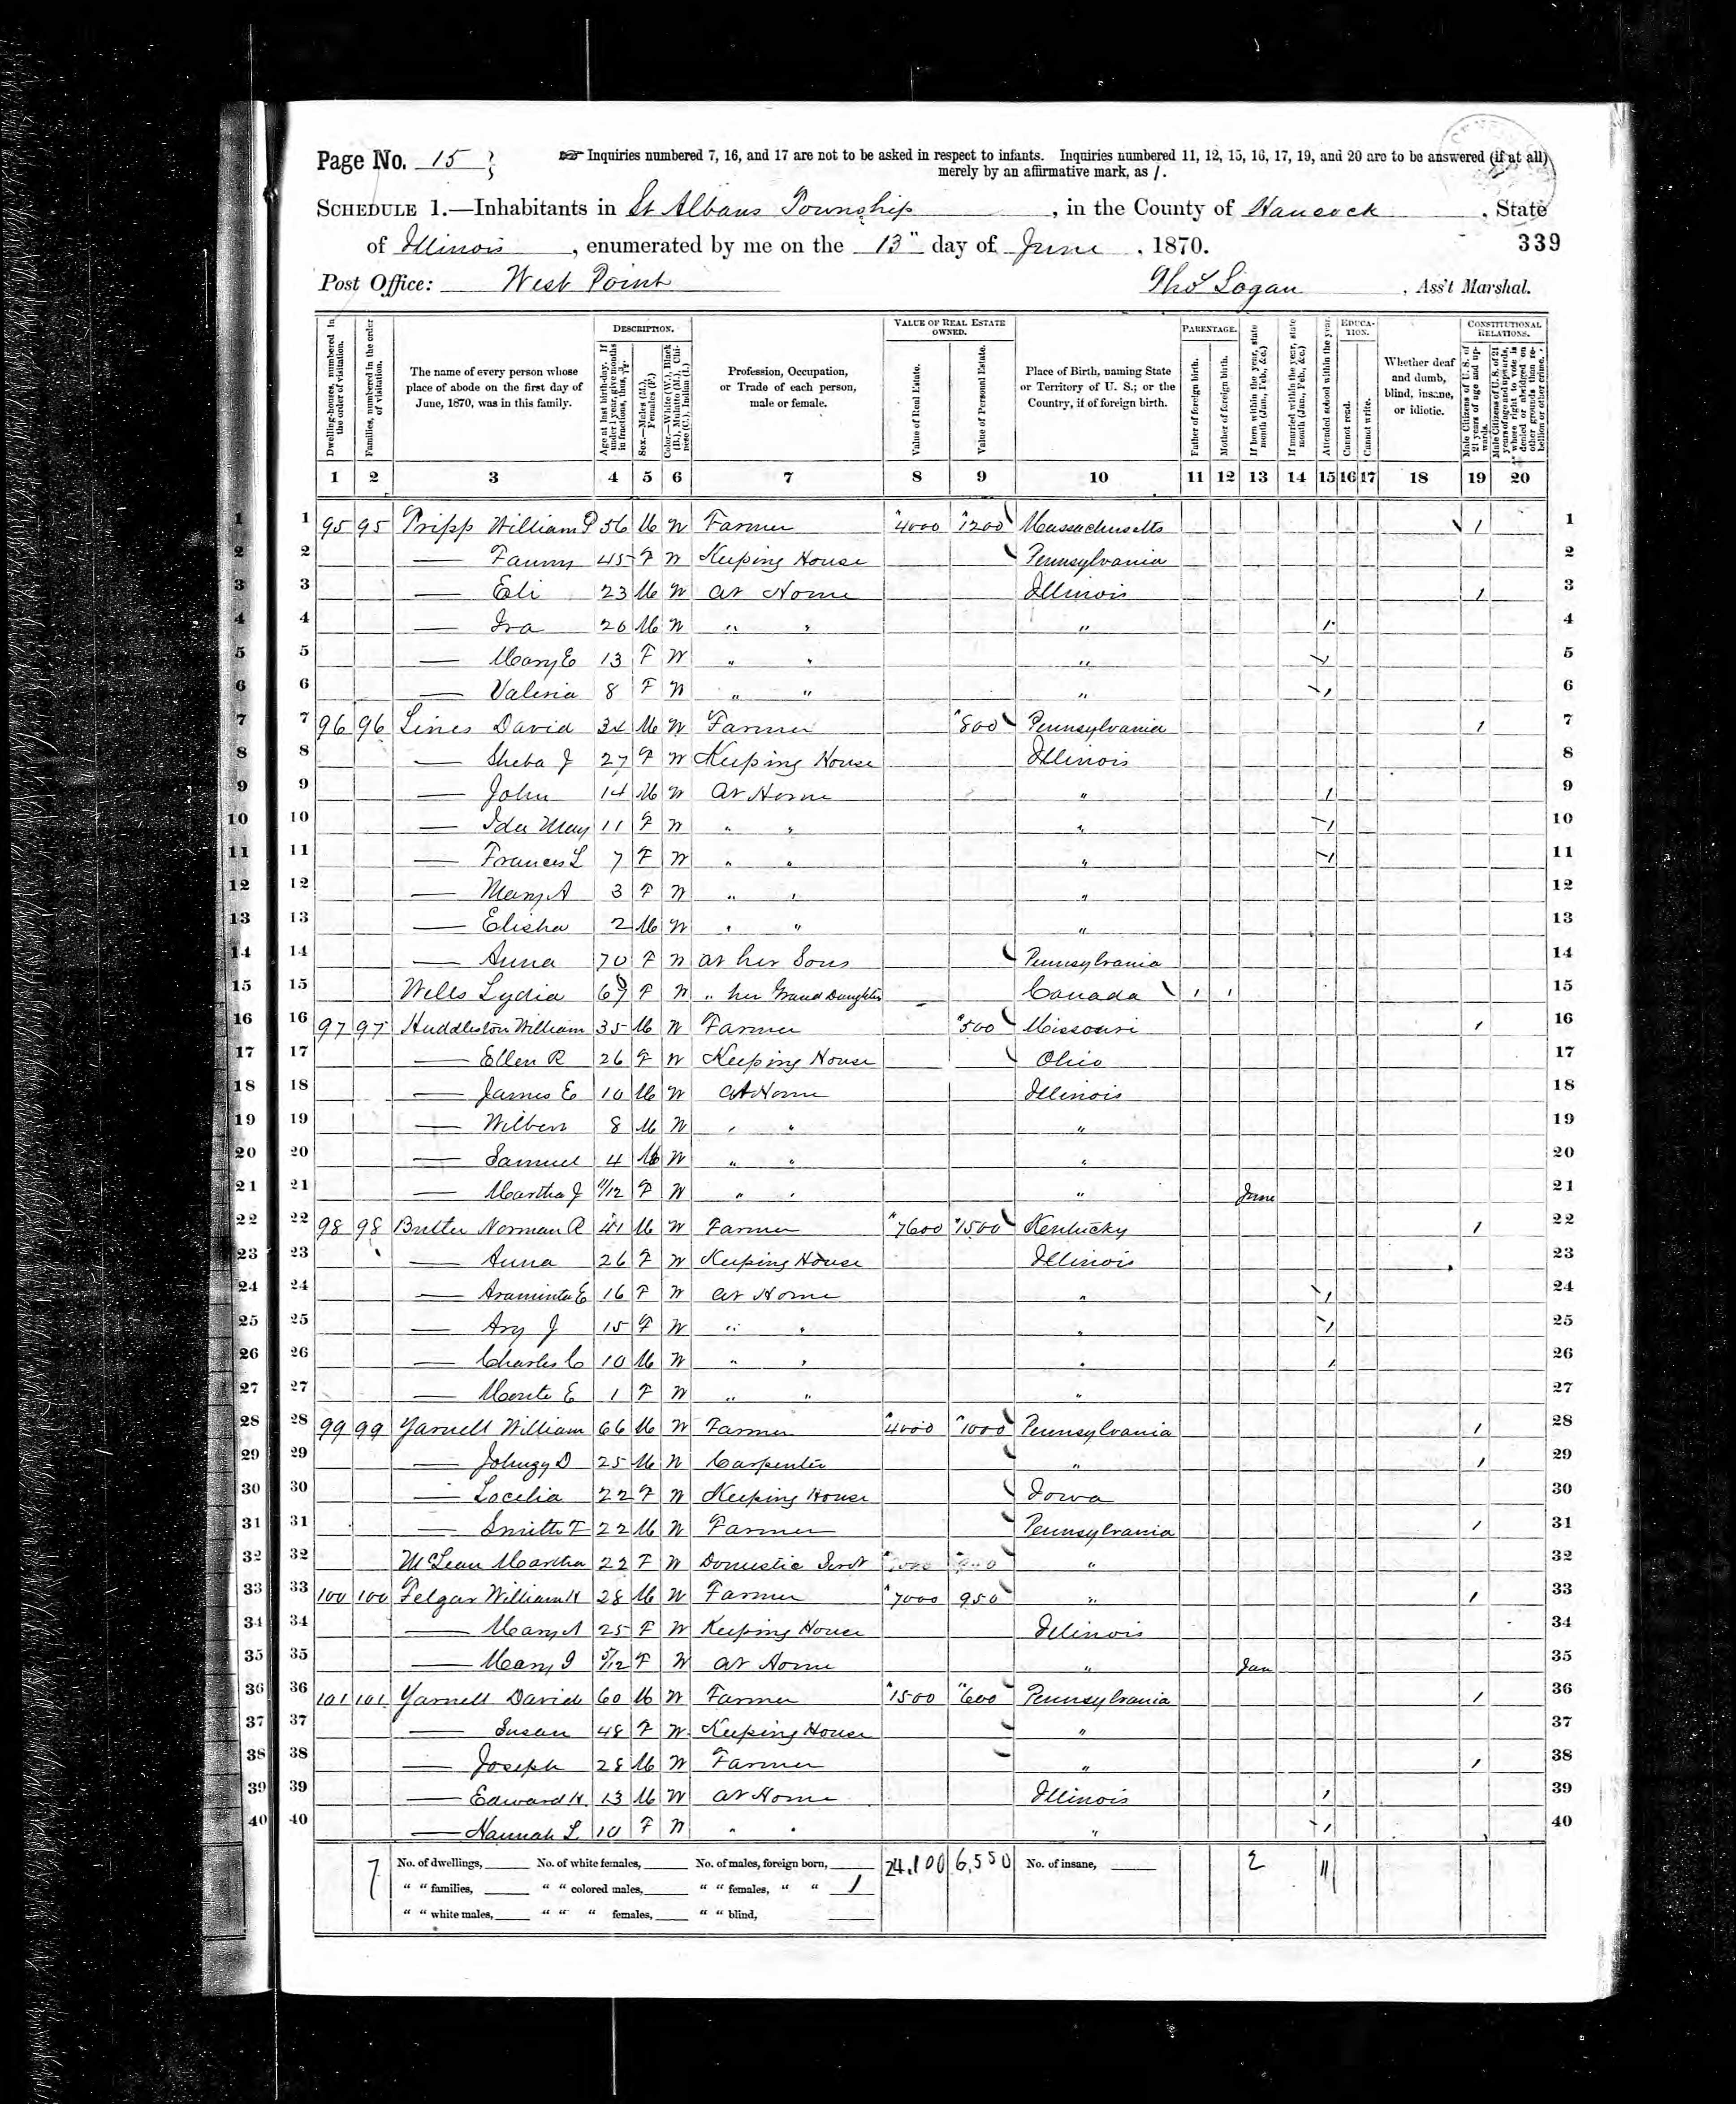 Page No. 15
Inquiries numbered 7, 16, and 17 are not to be asked in respect to infants. Inquiries numbered 11, 12, 15, 16, 17, 19, and 20 are to be answered (if at all)
merely by an affirmative mark, as /.
SCHEDULE 1.—Inhabitants in St Albans Township, in the County of Hancock, State
of Illinois, enumerated by me on the 13" day of June, 1870. 339
Post Office: West Point Thos Logan, Ass't Marshal.
Dwelling-houses, numbered in the order of visitation.
Families, numbered in the order of visitation.
The name of every person whose place of abode on the first day of June, 1870, was in this family.
DESCRIPTION.
Age at last birth-day. If under 1 year, give months in fractions, thus, 3/12.
Sex.—Males (M.), Females (F.)
Color.—White (W.), Black (B.), Mulatto (M.), Chinese (C.), Indian (I.)
Profession, Occupation, or Trade of each person, male or female.
VALUE OF REAL ESTATE OWNED.
Value of Real Estate.
Value of Personal Estate.
Place of Birth, naming State or Territory of U. S.; or the Country, if of foreign birth.
PARENTAGE.
Father of foreign birth.
Mother of foreign birth.
If born within the year, state month (Jan., Feb., &c.)
If married within the year, state month (Jan., Feb., &c.)
Attended school within the year.
EDUCATION.
Cannot read.
Cannot write.
Whether deaf and dumb, blind, insane, or idiotic.
CONSTITUTIONAL RELATIONS.
Male Citizens of U. S. of 21 years of age and upwards.
Male Citizens of U. S. of 21 years of age and upwards, whose right to vote is denied or abridged on other grounds than rebellion or other crime.
1 2 3 4 5 6 7 8 9 10 11 12 13 14 15 16 17 18 19 20
1 1 95 95 Tripp William P 56 M W Farmer 4000 1200 Massachusetts 1 1
2 2 — Fanny 45 F W Keeping House Pennsylvania 2
3 3 — Eli 23 M W At Home Illinois 1 3
4 4 — Ira 20 M W " " " 1 4
5 5 — Mary E 13 F W " " " 1 5
6 6 — Valeria 8 F W " " " 1 6
7 7 96 96 Lines David 34 M W Farmer 800 Pennsylvania 1 7
8 8 — Sheba J 27 F W Keeping House Illinois 8
9 9 — John 14 M W At Home " 1 9
10 10 — Ida May 11 F W " " " 1 10
11 11 — Frances L 7 F W " " " 1 11
12 12 — Mary A 3 F W " " " 12
13 13 — Elisha 2 M W " " " 13
14 14 — Anna 70 F W At her Sons Pennsylvania 14
15 15 Wells Lydia F W " her Grand Daughters Canada 1 1 15
16 16 97 97 Huddleston William 35 M W Farmer 500 Missouri 1 16
17 17 — Ellen R 26 F W Keeping House Ohio 17
18 18 — James E 10 M W At Home Illinois 18
19 19 — Wilbert 8 M W " " " 19
20 20 — Samuel 4 M W " " " 20
21 21 — Martha J 11/12 F W " " " June 21
22 22 98 98 Butler Norman R 41 M W Farmer 7600 1500 Kentucky 1 22
23 23 — Anna 26 F W Keeping House Illinois 23
24 24 — Araminta E 16 F W At Home " 1 24
25 25 — Ary J 15 F W " " " 1 25
26 26 — Charles C 10 M W " " " 1 26
27 27 — E 1 F W " " " 27
28 28 99 99 Yarnell William 66 M W Farmer 4000 1000 Pennsylvania 1 28
29 29 — D 25 M W Carpenter " 1 29
30 30 — Locelia 22 F W Keeping House Iowa 30
31 31 — Smith T 22 M W Farmer Pennsylvania 1 31
32 32 McLean Martha 22 F W Domestic Servt " 32
33 33 100 100 Felgar William H 28 M W Farmer 7000 950 " 1 33
34 34 — Mary A 25 F W Keeping House Illinois 34
35 35 — Mary I 5/12 F W At Home " Jan 35
36 36 101 101 Yarnell David 60 M W Farmer 1500 600 Pennsylvania 1 36
37 37 — Susan 48 F W Keeping House " 37
38 38 — Joseph 28 M W Farmer " 1 38
39 39 — Edward H. 13 M W At Home Illinois 1 39
40 40 — Hannah L 10 F W " " " 1 40
7 No. of dwellings, No. of white females, No. of males, foreign born, 24,100 6,550 No. of insane, 2 11
" " families, " " colored males, " " females, " " 1
" " white males, " " " females, " " blind,